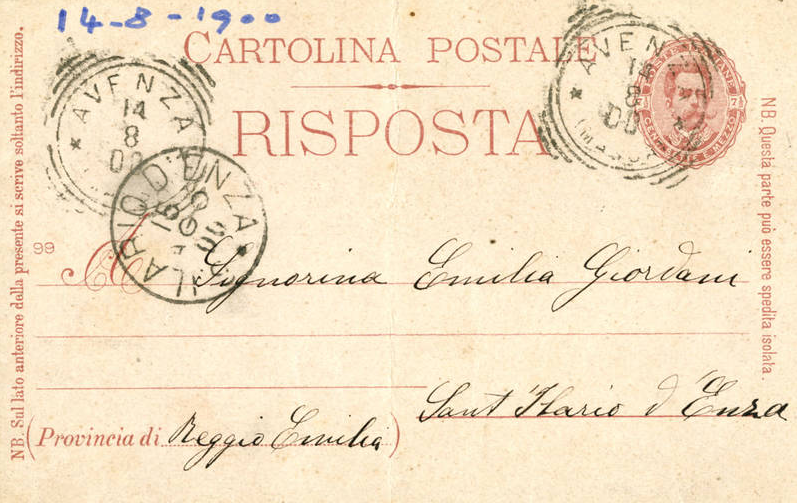 14-8-1900
CARTOLINA POSTALE
RISPOSTA
AVENZA
14
8
00
AVENZA
14
8
00
7½
CENT. SETTE E MEZZO
ILARIO D'ENZA
99
A Signorina Emilia Giordani
Sant Ilario d'Enza
(Provincia di Reggio Emilia)
NB. Sul lato anteriore della presente si scrive soltanto l'indirizzo.
NB. Questa parte può essere spedita isolata.